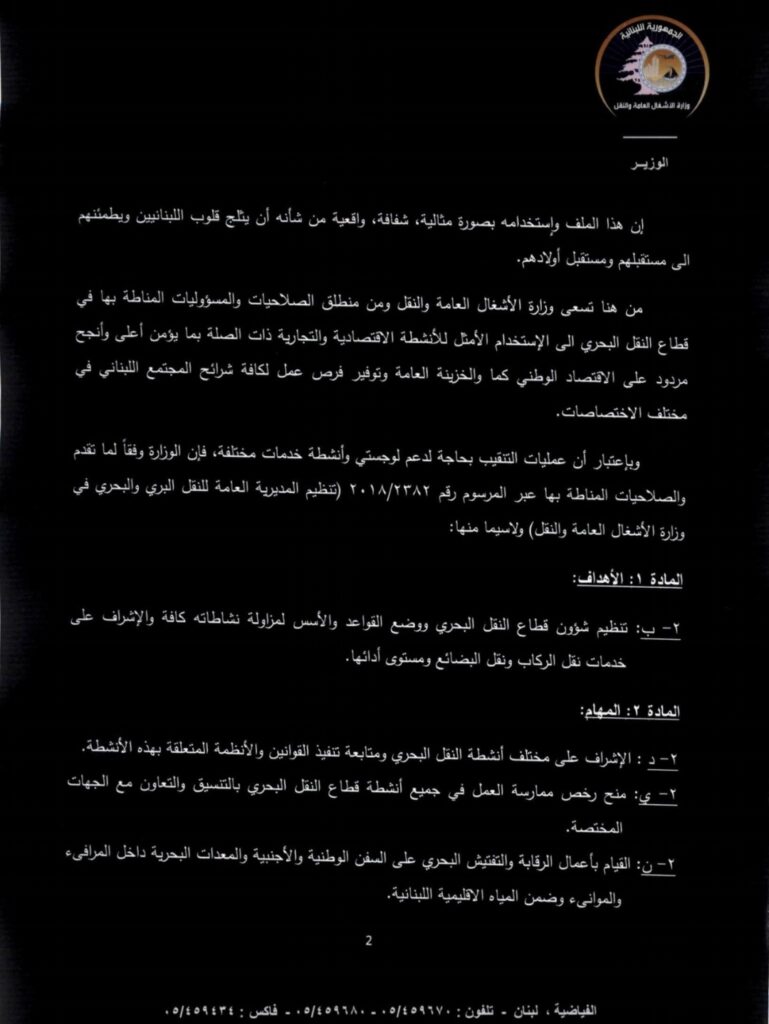 الجمهورية اللبنانية
وزارة الاشغال العامة والنقل
الوزيـر
إن هذا الملف وإستخدامه بصورة مثالية، شفافة، واقعية من شأنه أن يثلج قلوب اللبنانيين ويطمئنهم
الى مستقبلهم ومستقبل أولادهم.
من هنا تسعى وزارة الأشغال العامة والنقل ومن منطلق الصلاحيات والمسؤوليات المناطة بها في
قطاع النقل البحري الى الإستخدام الأمثل للأنشطة الاقتصادية والتجارية ذات الصلة بما يؤمن أعلى وأنجح
مردود على الاقتصاد الوطني كما والخزينة العامة وتوفير فرص عمل لكافة شرائح المجتمع اللبناني في
مختلف الاختصاصات.
وبإعتبار أن عمليات التنقيب بحاجة لدعم لوجستي وأنشطة خدمات مختلفة، فإن الوزارة وفقاً لما تقدم
والصلاحيات المناطة بها عبر المرسوم رقم ٢٠١٨/٢٣٨٢ (تنظيم المديرية العامة للنقل البري والبحري في
وزارة الأشغال العامة والنقل) ولاسيما منها:
المادة ١: الأهداف:
٢- ب: تنظيم شؤون قطاع النقل البحري ووضع القواعد والأسس لمزاولة نشاطاته كافة والإشراف على
خدمات نقل الركاب ونقل البضائع ومستوى أدائها.
المادة ٢: المهام:
٢- د : الإشراف على مختلف أنشطة النقل البحري ومتابعة تنفيذ القوانين والأنظمة المتعلقة بهذه الأنشطة.
٢- ي: منح رخص ممارسة العمل في جميع أنشطة قطاع النقل البحري بالتنسيق والتعاون مع الجهات
المختصة.
٢- ن: القيام بأعمال الرقابة والتفتيش البحري على السفن الوطنية والأجنبية والمعدات البحرية داخل المرافىء
والموانىء وضمن المياه الاقليمية اللبنانية.
2
الفياضية ، لبنان - تلفون : ٠٥/٤٥٩٦٧٠ - ٠٥/٤٥٩٦٨٠ - فاكس : ٠٥/٤٥٩٤٣٤